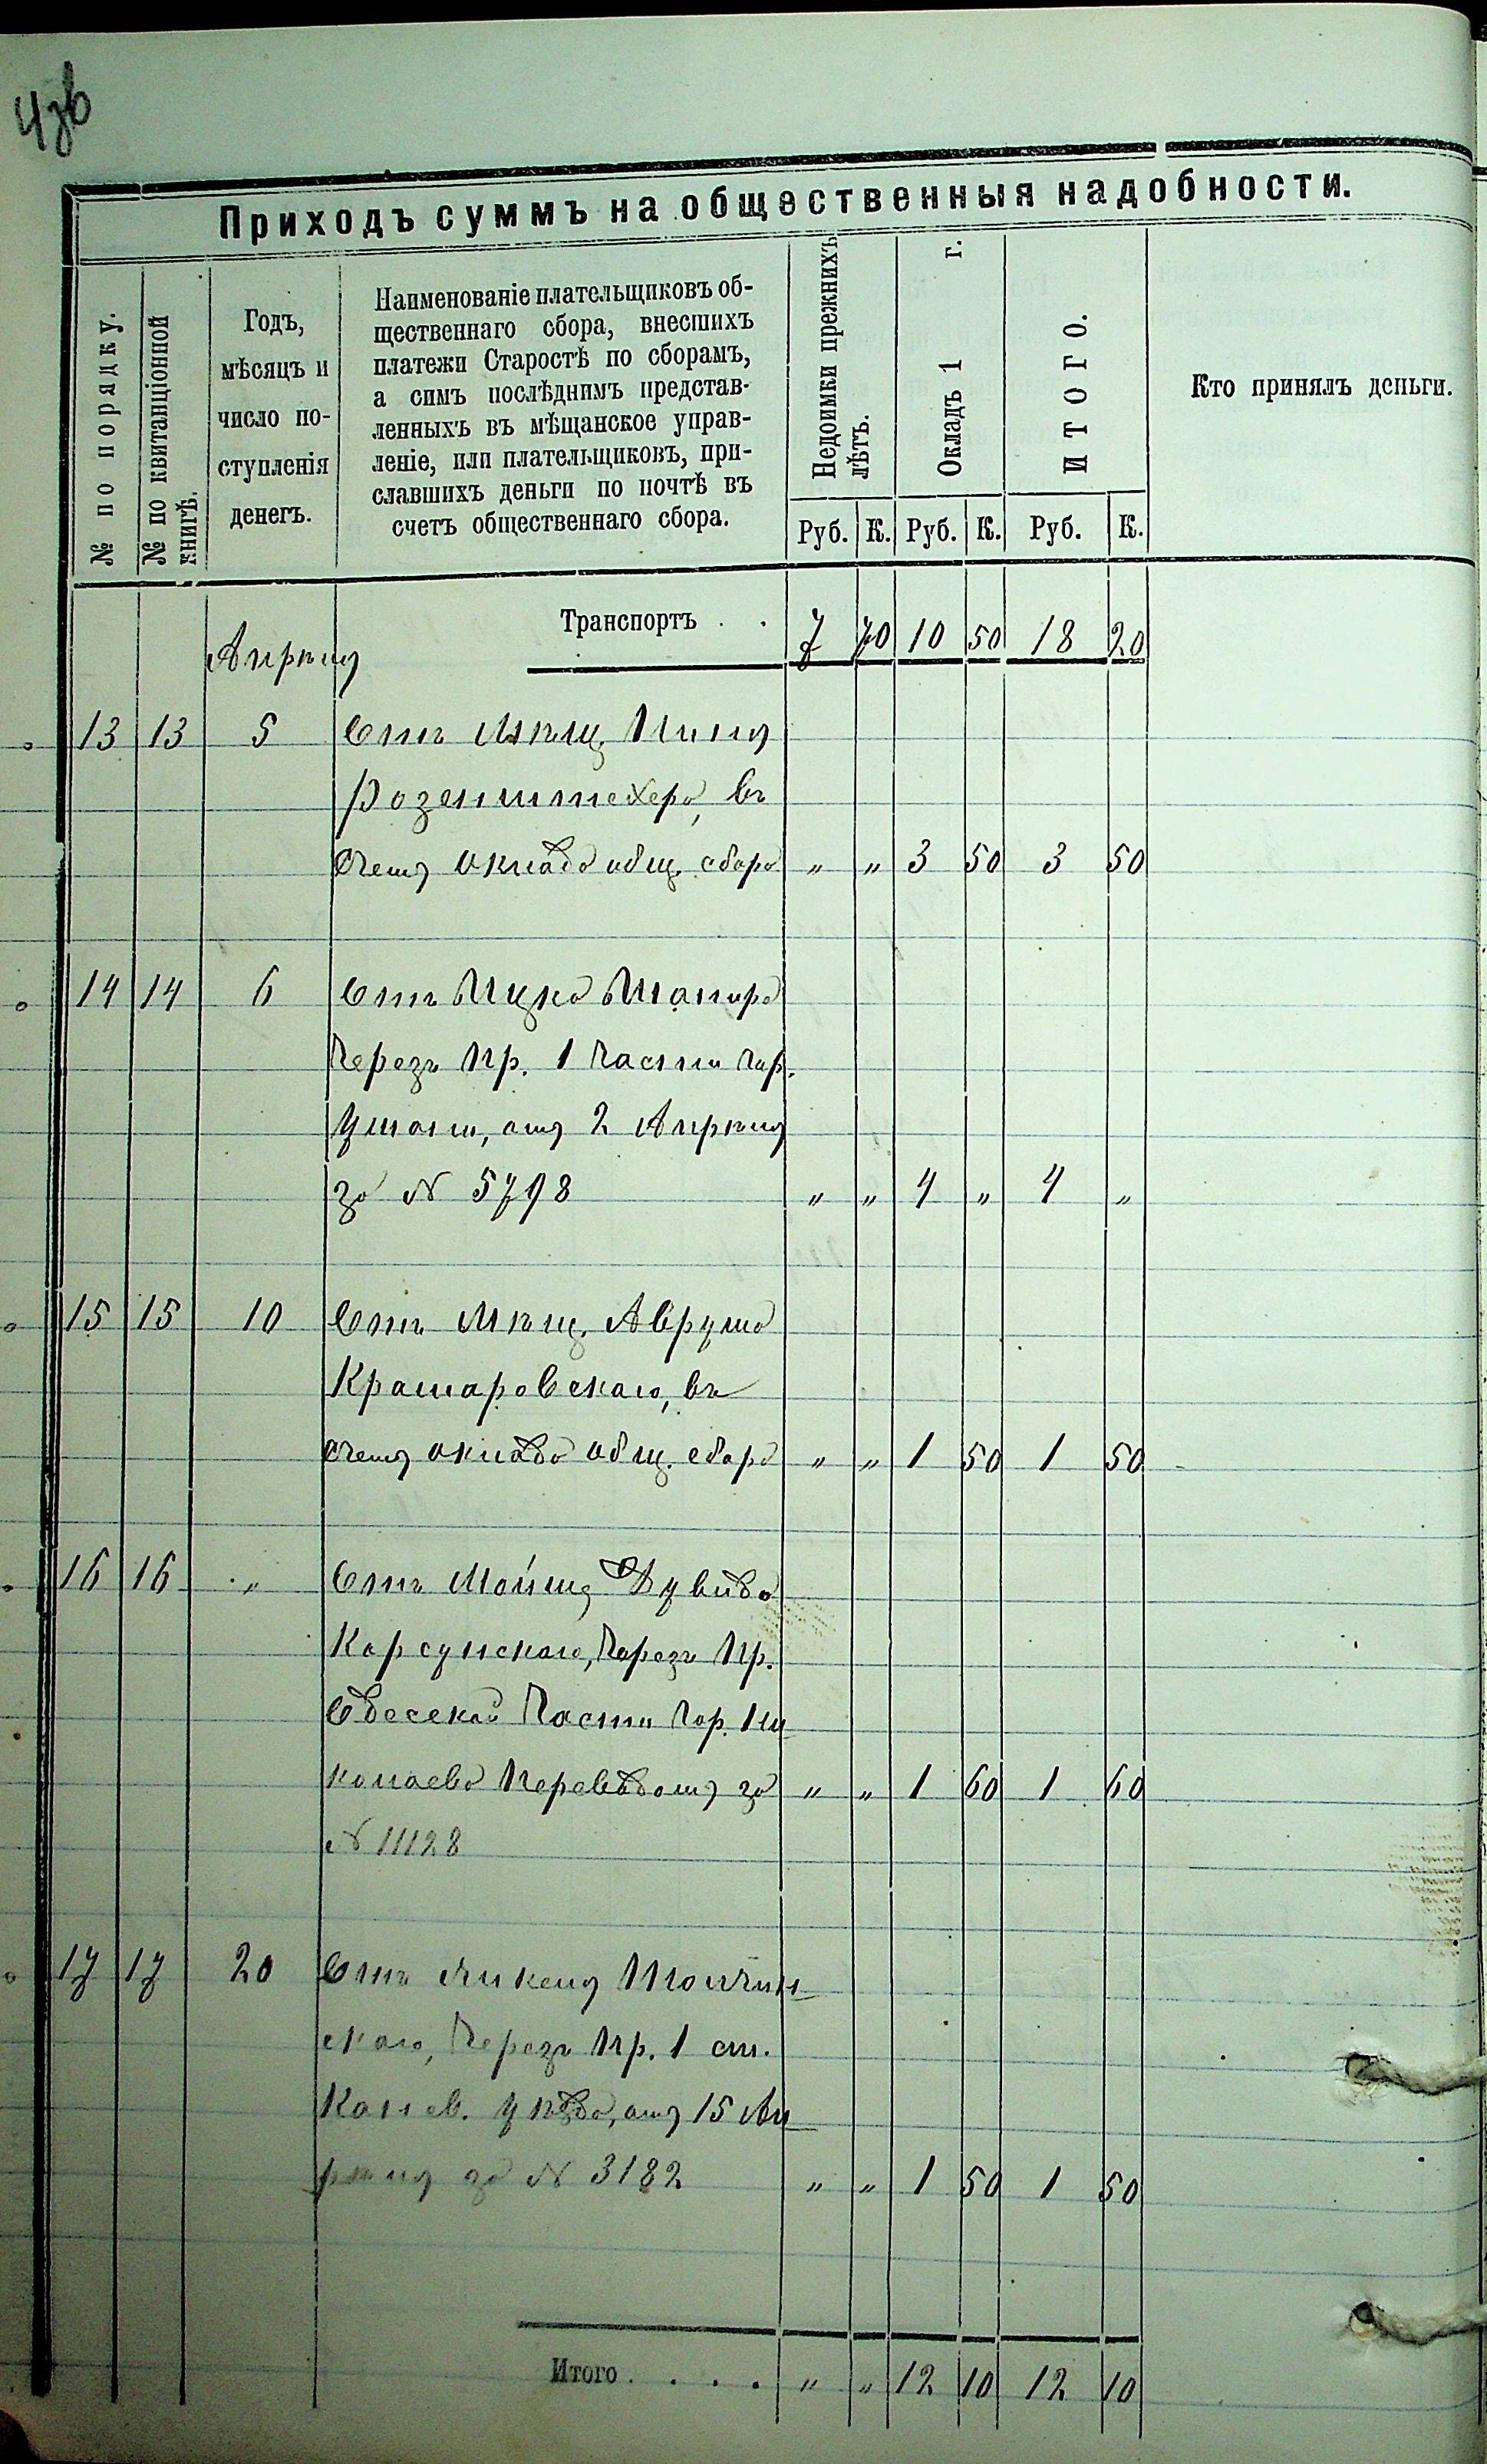 4зв
Приходъ суммъ на общественныя надобности.
№ по порядку.
№ по квитанціонной книгѣ.
Годъ,
мѣсяцъ и
число по-
ступленія
денегъ.
Наименованіе плательщиковъ об-
щественнаго сбора, внесшихъ
платежи Старостѣ по сборамъ,
а симъ послѣднимъ представ-
ленныхъ въ мѣщанское управ-
леніе, или плательщиковъ, при-
славшихъ деньги по почтѣ въ
счетъ общественнаго сбора.
Недоимки прежнихъ лѣтъ.
Окладъ 1 г.
ИТОГО.
Кто принялъ деньги.
Руб. К. Руб. К. Руб. К.
Транспортъ . . 7 70 10 50 18 20
Апрѣля
13 13 5 Отъ Мѣщ.
Розенштехера, въ
счетъ оклада общ. сбора „ „ 3 50 3 50
14 14 6 Отъ Ицка Шапира
Черезъ Пр. 1 части гор.
Умани, отъ 2 Апрѣля
за № 5798 „ „ 4 „ 4 „
15 15 10 Отъ Мѣщ. Аврума
Крамаровскаго, въ
счетъ оклада общ. сбора „ „ 1 50 1 50
16 16 „ Отъ Мойше Дувида
Корсунскаго, Черезъ Пр.
Одесской Части Гор. Ни
колаева Переводомъ за „ „ 1 60 1 60
№ 11128
17 17 20 Отъ Янкеля Толчин
скаго, Черезъ Пр. 1 ст.
Канев. уѣзда, отъ 15 Ап
рѣля за № 3182 „ „ 1 50 1 50
Итого . . . . „ „ 12 10 12 10